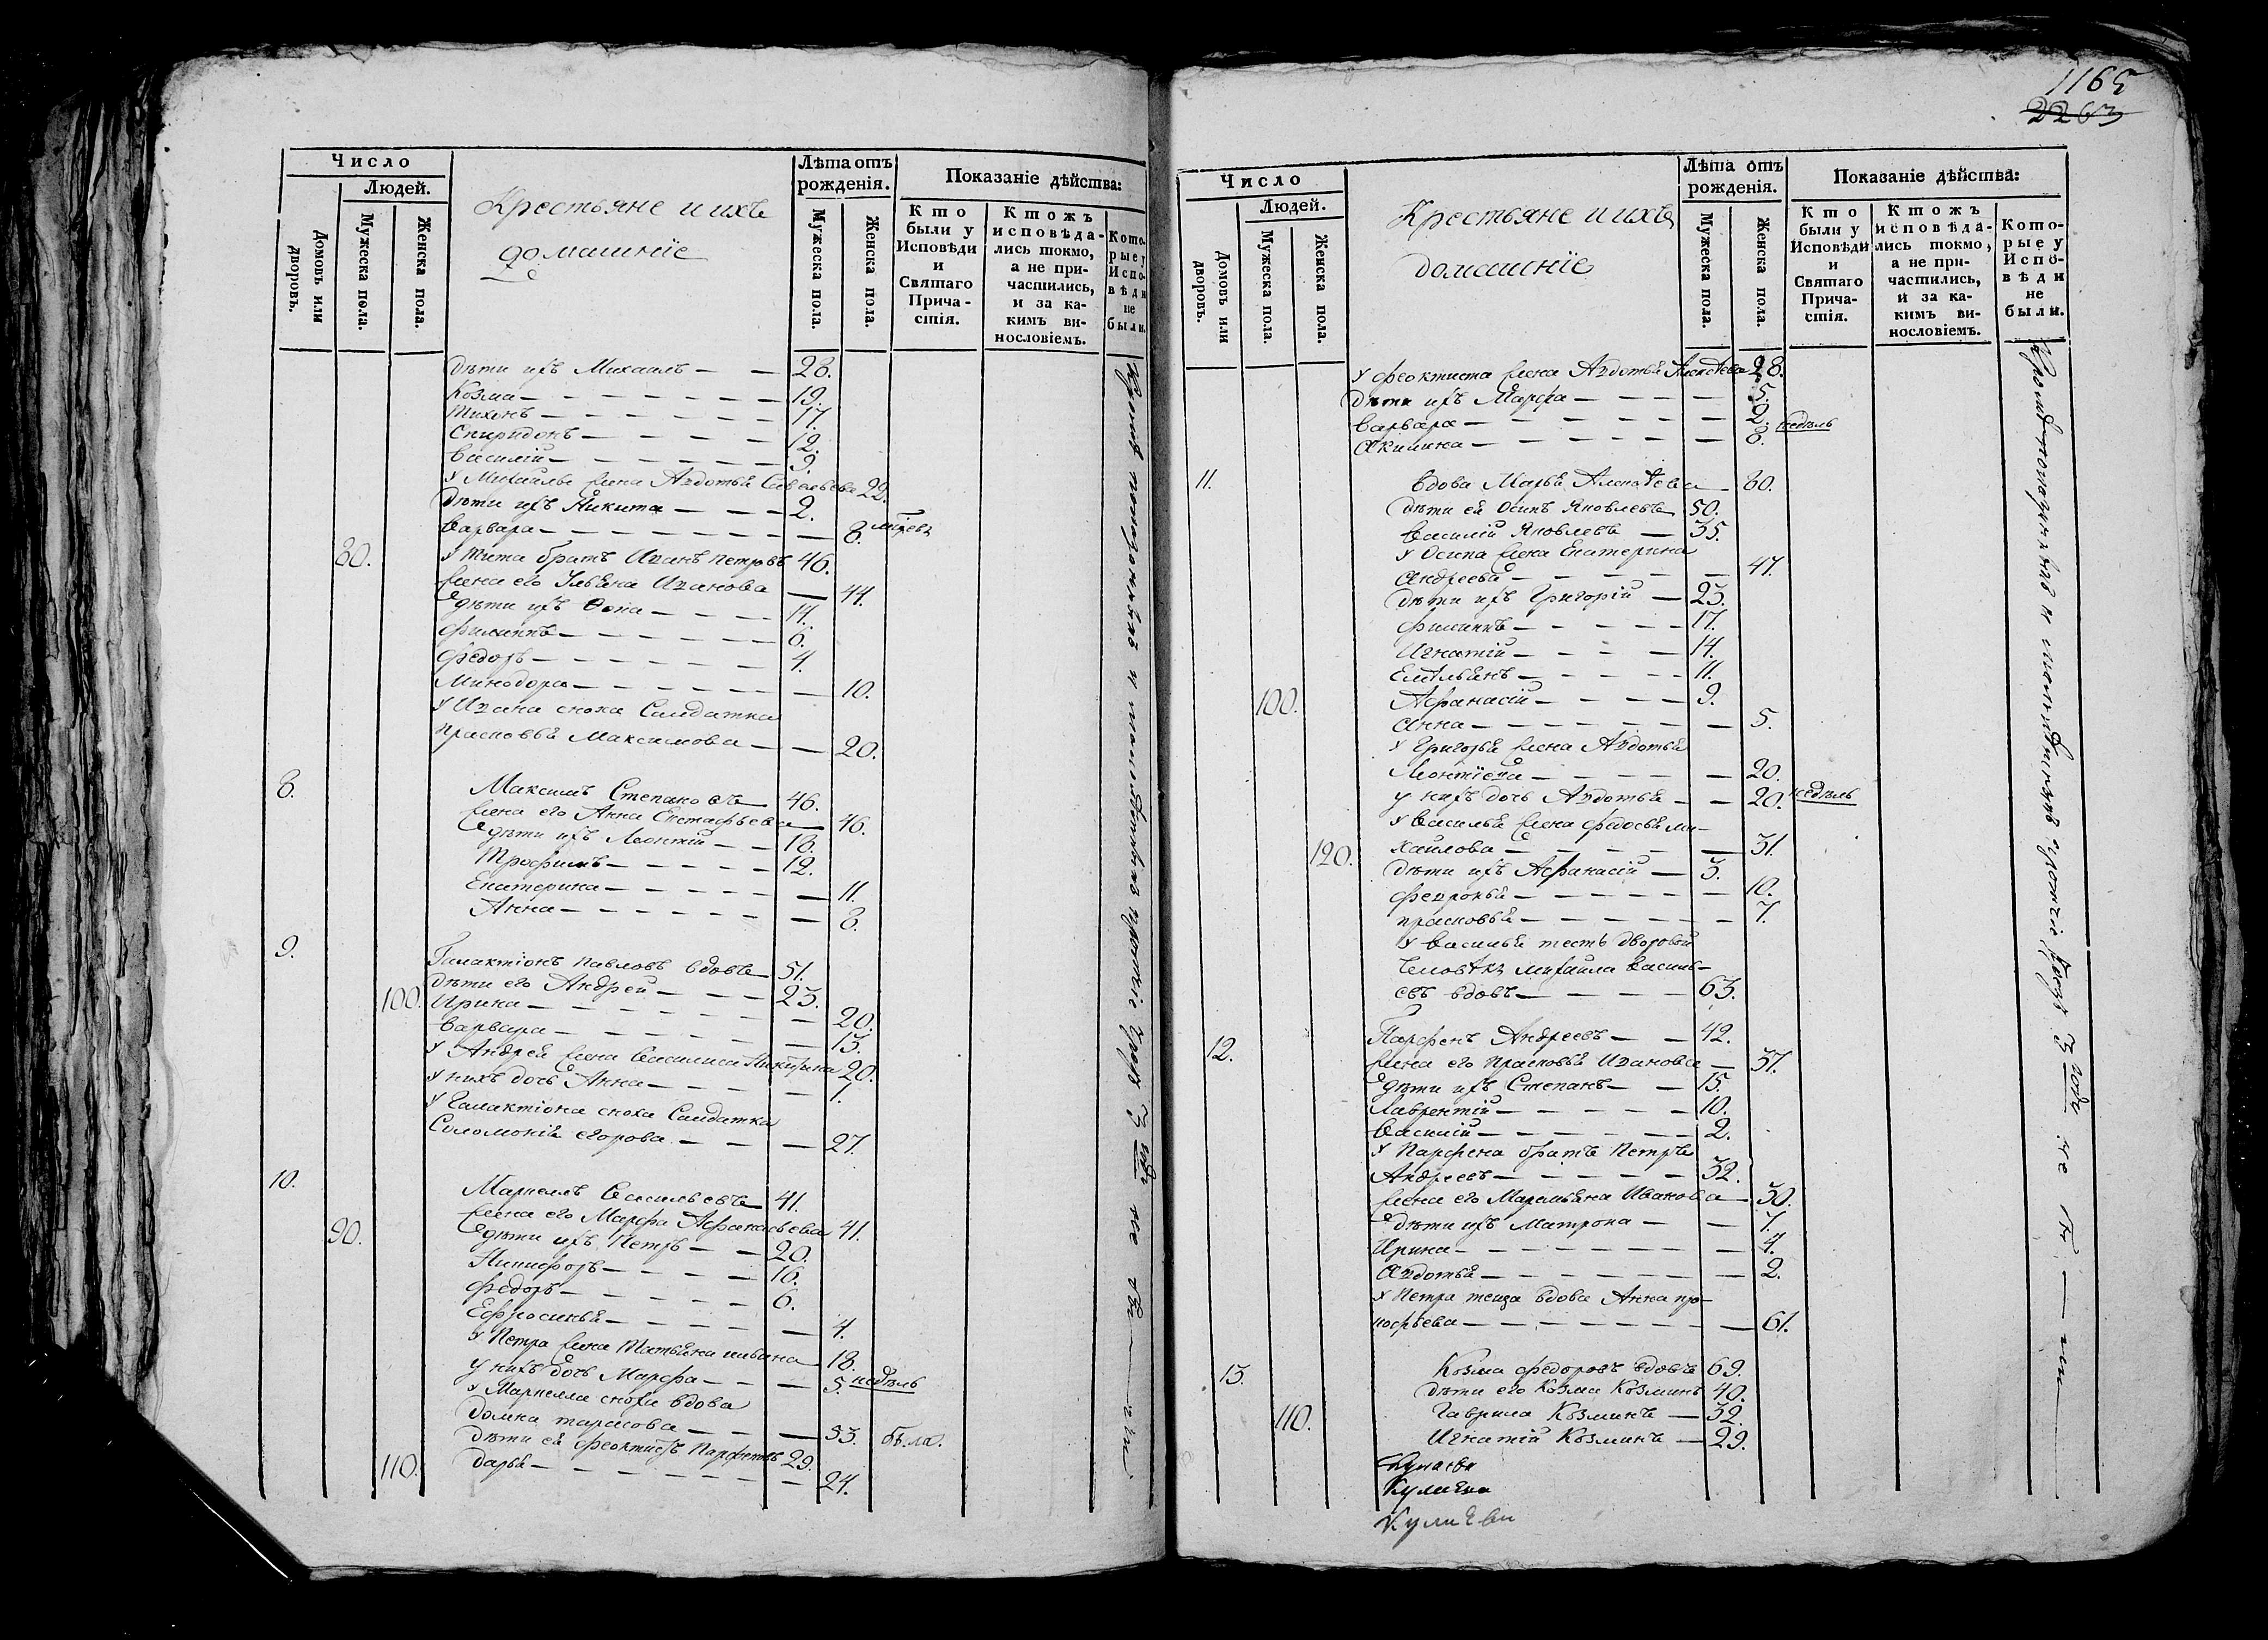 Число
Людей.
Домовъ или дворовъ.
Мужеска пола.
Женска пола.
Крестьяне и ихъ
домашніе
Лѣта отъ рожденія.
Мужеска пола.
Женска пола.
Показаніе дѣйства:
Кто были у Исповѣди и Святаго Прича-стія.
Ктожъ исповѣда-лись токмо, а не при-частились, и за ка-кимъ ви-нословіемъ.
Кото-рые у Испо-вѣди не были.
дѣти ихъ Михаилъ — — 28.
Козма — 19.
Тихонъ — 17.
Спиридонъ — 12.
Василій — 9.
у Михайлы жена Авдотья Савельева 22.
дѣти ихъ Никита — 2.
Варвара — 8.
80. у Тита братъ Иванъ Петровъ 46.
жена его Ульяна Иванова — 44.
дѣти ихъ Ѳома — 11.
Филиппъ — 6.
Федоръ — 4.
Минодора — 10.
у Ивана сноха Салдатка
Прасковья Максимова — 20.
8. Максимъ Степановъ 46.
жена его Анна Евстафьева 46.
дѣти ихъ Леонтій — 18.
Трофимъ — 12.
Екатерина — 11.
Анна — 8.
9. Галактіонъ Павловъ вдовъ 51.
дѣти его Андрей — 23.
100. Ирина — 20.
Варвара — 13.
у Андрея жена Василиса Никитина 20.
у нихъ дочь Анна — 1.
у Галактіона сноха Салдатка
Соломонія Егорова — 27.
10. Маркеллъ Васильевъ 41.
жена его Марфа Афанасьева 41.
90. дѣти ихъ Петръ — 20.
Никифоръ — 16.
Федоръ — 6.
Ефросинья — 4.
у Петра жена Татьяна 18.
у нихъ дочь Марфа — 5. недѣль
у Маркелла сноха вдова
Домна Тарасова — 53. была.
дѣти ея Феоктистъ Парфеновъ 29.
110. Дарья — 24.
1165
2263
Число
Людей.
Домовъ или дворовъ.
Мужеска пола.
Женска пола.
Крестьяне и ихъ
домашніе
Лѣта отъ рожденія.
Мужеска пола.
Женска пола.
Показаніе дѣйства:
Кто были у Исповѣди и Святаго Прича-стія.
Ктожъ исповѣда-лись токмо, а не при-частились, и за ка-кимъ ви-нословіемъ.
Кото-рые у Испо-вѣди не были.
у Феоктиста жена Авдотья Алексѣева 28.
дѣти ихъ Марфа — 5.
Варвара — 2.
Акилина — 8. недѣль
11. вдова Марья Алексѣева 80.
дѣти ея Осипъ Яковлевъ 50.
Василій Яковлевъ — 35.
у Осипа жена Екатерина
Андреева — 47.
дѣти ихъ Григорій — 23.
Филиппъ — 17.
Игнатій — 14.
Емельянъ — 11.
100. Афанасій — 9.
Анна — 5.
у Григорья жена Авдотья
Леонтіева — 20.
у нихъ дочь Авдотья — 20. недѣль
у Василья жена Федосья Ми-
120. хайлова — 31.
дѣти ихъ Афанасій — 3.
Февронья — 10.
Прасковья — 7.
у Василья тесть дворовой
человѣкъ Михайла Василь-
евъ вдовъ — 63.
12. Парфенъ Андреевъ — 42.
жена его Прасковья Иванова — 37.
дѣти ихъ Степанъ — 15.
Лаврентій — 10.
Василій — 2.
у Парфена братъ Петръ
Андреевъ — 32.
жена его Маремьяна Иванова 30.
дѣти ихъ Матрона — 7.
Ирина — 4.
Авдотья — 2.
у Петра теща вдова Анна Про-
кофьева — 61.
13. Козма Федоровъ вдовъ 69.
дѣти его Козма Козминъ 40.
110. Гаврила Козминъ — 32.
Игнатій Козминъ — 29.